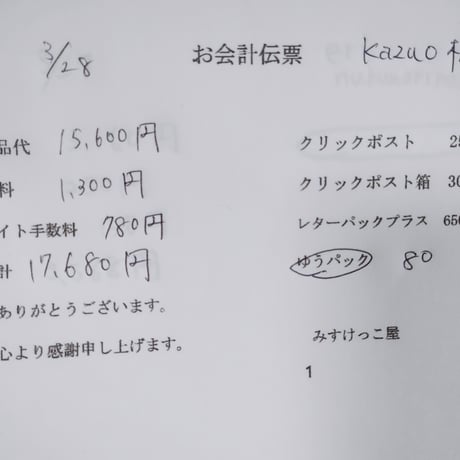 3/28 お会計伝票 Kazuo
品代 15,600円 クリックポスト 25
料 1,300円 クリックポスト箱 30
イト手数料 780円 レターパックプラス 650
計 17,680円 ゆうパック 80
ありがとうございます。
心より感謝申し上げます。 みすけっこ屋
1